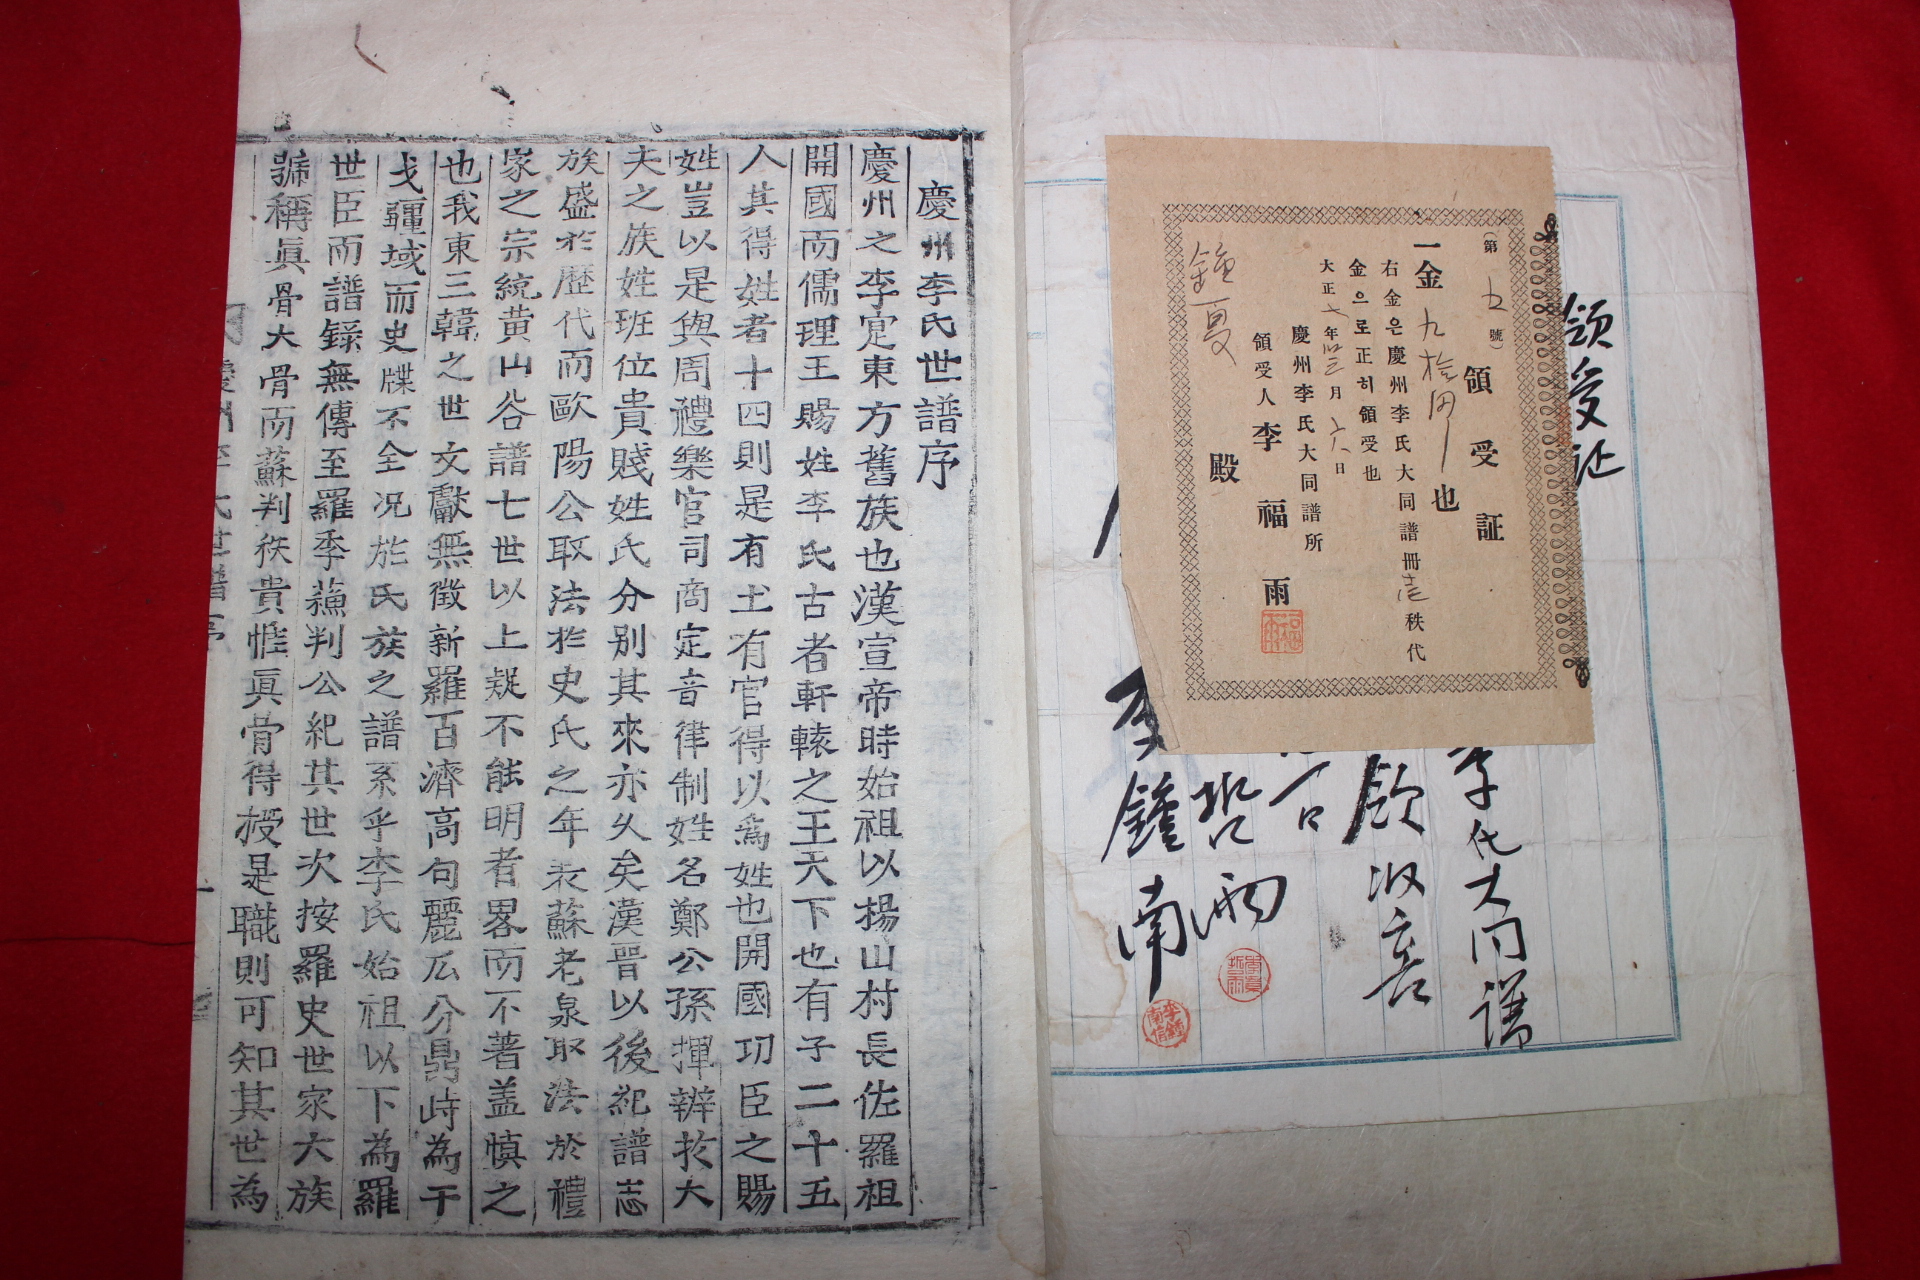 領受証
領受証
(第五號)
一金九拾円也
右金은慶州李氏大同譜冊壱秩代
金으로正히領受也
大正七年三月六日
慶州李氏大同譜所
領受人李福雨
殿
鍾夏
李氏大同譜
哲雨
李鍾南
慶州李氏世譜序
慶州之李寔東方舊族也漢宣帝時始祖以揚山村長佐羅祖
開國而儒理王賜姓李氏古者軒轅之王天下也有子二十五
人其得姓者十四則是有土有官得以為姓也開國功臣之賜
姓豈以是與周禮樂官司商定音律制姓名鄭公孫揮辨扵大
夫之族姓班位貴賤姓氏分別其來亦乆矣漢晋以後紀譜志
族盛扵歷代而歐陽公取法扵史氏之年表蘇老泉取法於禮
家之宗統黄山谷譜七世以上疑不能明者畧而不著盖慎之
也我東三韓之世文獻無徵新羅百濟高句麗瓜分鼎峙為干
戈疆域而史牒不全况扵氏族之譜系乎李氏始祖以下為羅
世臣而譜錄無傳至羅季蘓判公紀其世次按羅史世家大族
號稱眞骨大骨而蘇判秩貴惟眞骨得授是職則可知其世為
慶州李氏世譜序
一